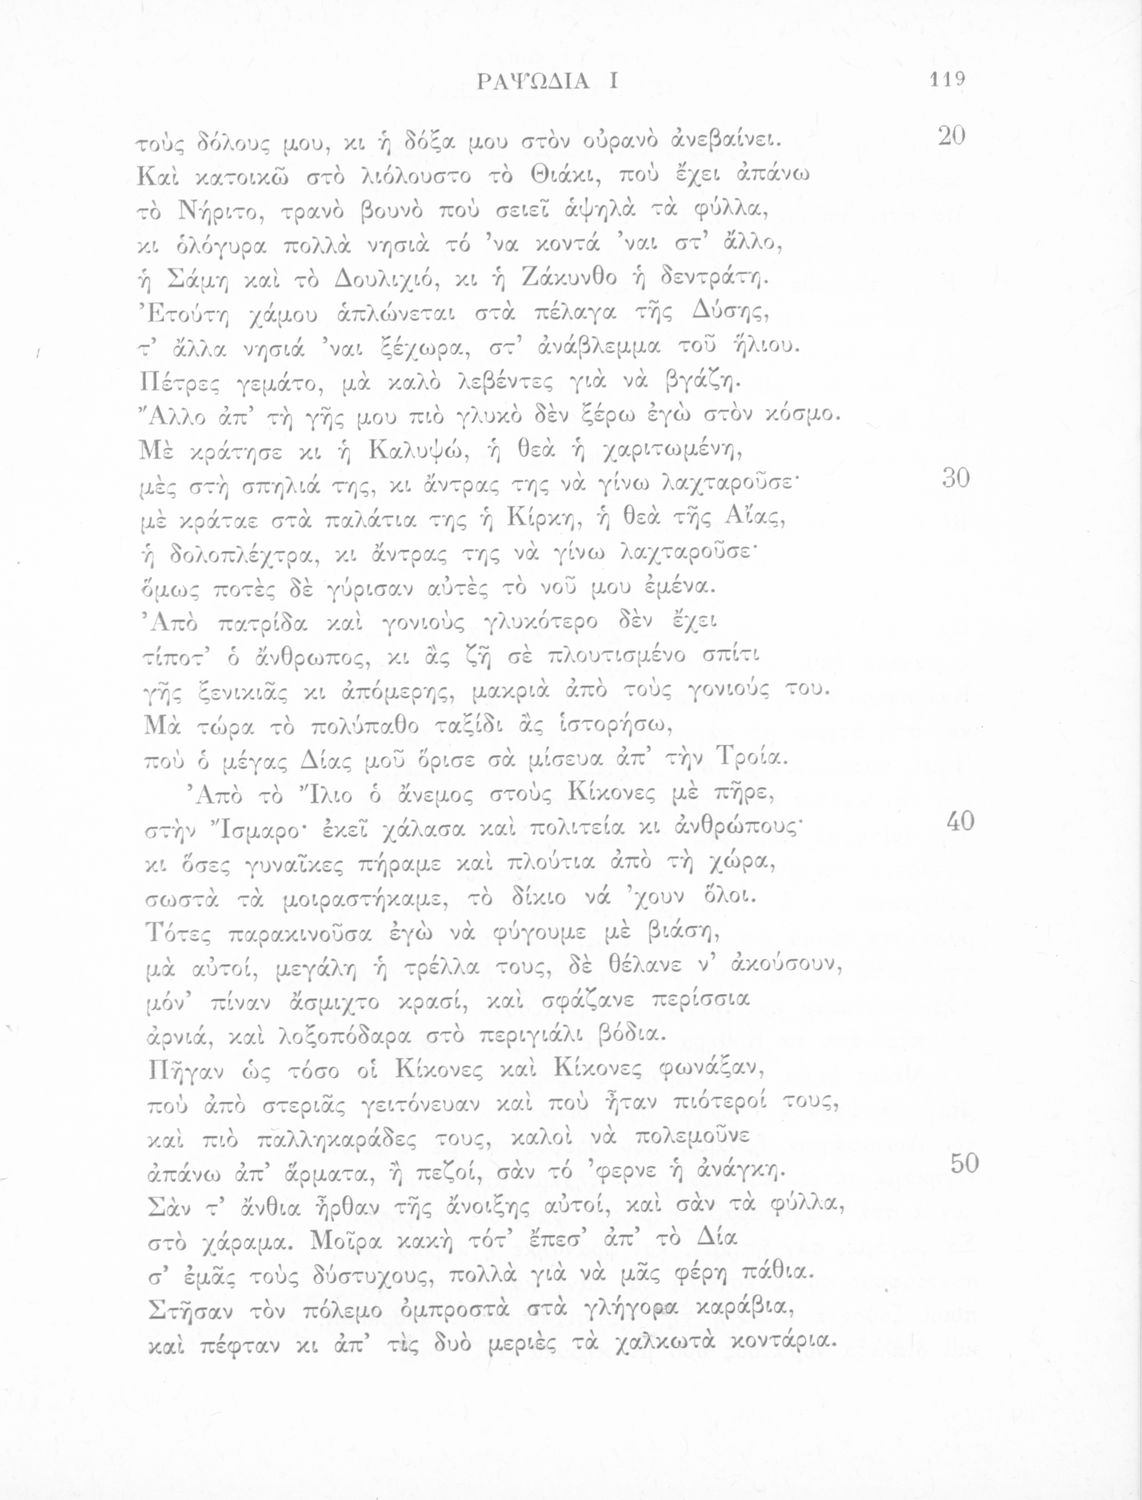 ΡΑΨΩΔΙΑ Ι 119
τοὺς δόλους μου, κι ἡ δόξα μου στὸν οὐρανὸ ἀνεβαίνει. 20
Καὶ κατοικῶ στὸ λιόλουστο τὸ Θιάκι, ποὺ ἔχει ἀπάνω
τὸ Νήριτο, τρανὸ βουνὸ ποὺ σειεῖ ἁψηλὰ τὰ φύλλα,
κι ὁλόγυρα πολλὰ νησιὰ τό ’να κοντά ’ναι στ’ ἄλλο,
ἡ Σάμη καὶ τὸ Δουλιχιό, κι ἡ Ζάκυνθο ἡ δεντράτη.
Ἐτούτη χάμου ἁπλώνεται στὰ πέλαγα τῆς Δύσης,
τ’ ἄλλα νησιά ’ναι ξέχωρα, στ’ ἀνάβλεμμα τοῦ ἥλιου.
Πέτρες γεμάτο, μὰ καλὸ λεβέντες γιὰ νὰ βγάζη.
Ἄλλο ἀπ’ τὴ γῆς μου πιὸ γλυκὸ δὲν ξέρω ἐγὼ στὸν κόσμο.
Μὲ κράτησε κι ἡ Καλυψώ, ἡ θεὰ ἡ χαριτωμένη,
μὲς στὴ σπηλιά της, κι ἄντρας της νὰ γίνω λαχταροῦσε· 30
μὲ κράταε στὰ παλάτια της ἡ Κίρκη, ἡ θεὰ τῆς Αἴας,
ἡ δολοπλέχτρα, κι ἄντρας της νὰ γίνω λαχταροῦσε·
ὅμως ποτὲς δὲ γύρισαν αὐτὲς τὸ νοῦ μου ἐμένα.
Ἀπὸ πατρίδα καὶ γονιοὺς γλυκότερο δὲν ἔχει
τίποτ’ ὁ ἄνθρωπος, κι ἂς ζῆ σὲ πλουτισμένο σπίτι
γῆς ξενικιᾶς κι ἀπόμερης, μακριὰ ἀπὸ τοὺς γονιούς του.
Μὰ τώρα τὸ πολύπαθο ταξίδι ἂς ἱστορήσω,
ποὺ ὁ μέγας Δίας μοῦ ὅρισε σὰ μίσευα ἀπ’ τὴν Τροία.
Ἀπὸ τὸ Ἴλιο ὁ ἄνεμος στοὺς Κίκονες μὲ πῆρε,
στὴν Ἴσμαρο· ἐκεῖ χάλασα καὶ πολιτεία κι ἀνθρώπους· 40
κι ὅσες γυναῖκες πήραμε καὶ πλούτια ἀπὸ τὴ χώρα,
σωστὰ τὰ μοιραστήκαμε, τὸ δίκιο νά ’χουν ὅλοι.
Τότες παρακινοῦσα ἐγὼ νὰ φύγουμε μὲ βιάση,
μὰ αὐτοί, μεγάλη ἡ τρέλλα τους, δὲ θέλανε ν’ ἀκούσουν,
μόν’ πίναν ἄσμιχτο κρασί, καὶ σφάζανε περίσσια
ἀρνιά, καὶ λοξοπόδαρα στὸ περιγιάλι βόδια.
Πῆγαν ὡς τόσο οἱ Κίκονες καὶ Κίκονες φωνάξαν,
ποὺ ἀπὸ στεριᾶς γειτόνευαν καὶ ποὺ ἦταν πιότεροί τους,
καὶ πιὸ παλληκαράδες τους, καλοὶ νὰ πολεμοῦνε
ἀπάνω ἀπ’ ἅρματα, ἢ πεζοί, σὰν τό ’φερνε ἡ ἀνάγκη. 50
Σὰν τ’ ἄνθια ἦρθαν τῆς ἄνοιξης αὐτοί, καὶ σὰν τὰ φύλλα,
στὸ χάραμα. Μοῖρα κακὴ τότ’ ἔπεσ’ ἀπ’ τὸ Δία
σ’ ἐμᾶς τοὺς δύστυχους, πολλὰ γιὰ νὰ μᾶς φέρη πάθια.
Στῆσαν τὸν πόλεμο ὀμπροστὰ στὰ γλήγορα καράβια,
καὶ πέφταν κι ἀπ’ τὶς δυὸ μεριὲς τὰ χαλκωτὰ κοντάρια.